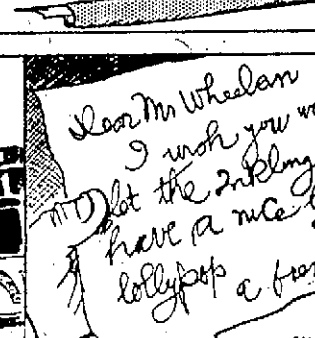 Dear Mr Wheelan
I wish you
let the Inkling
have a nice
lollypop a